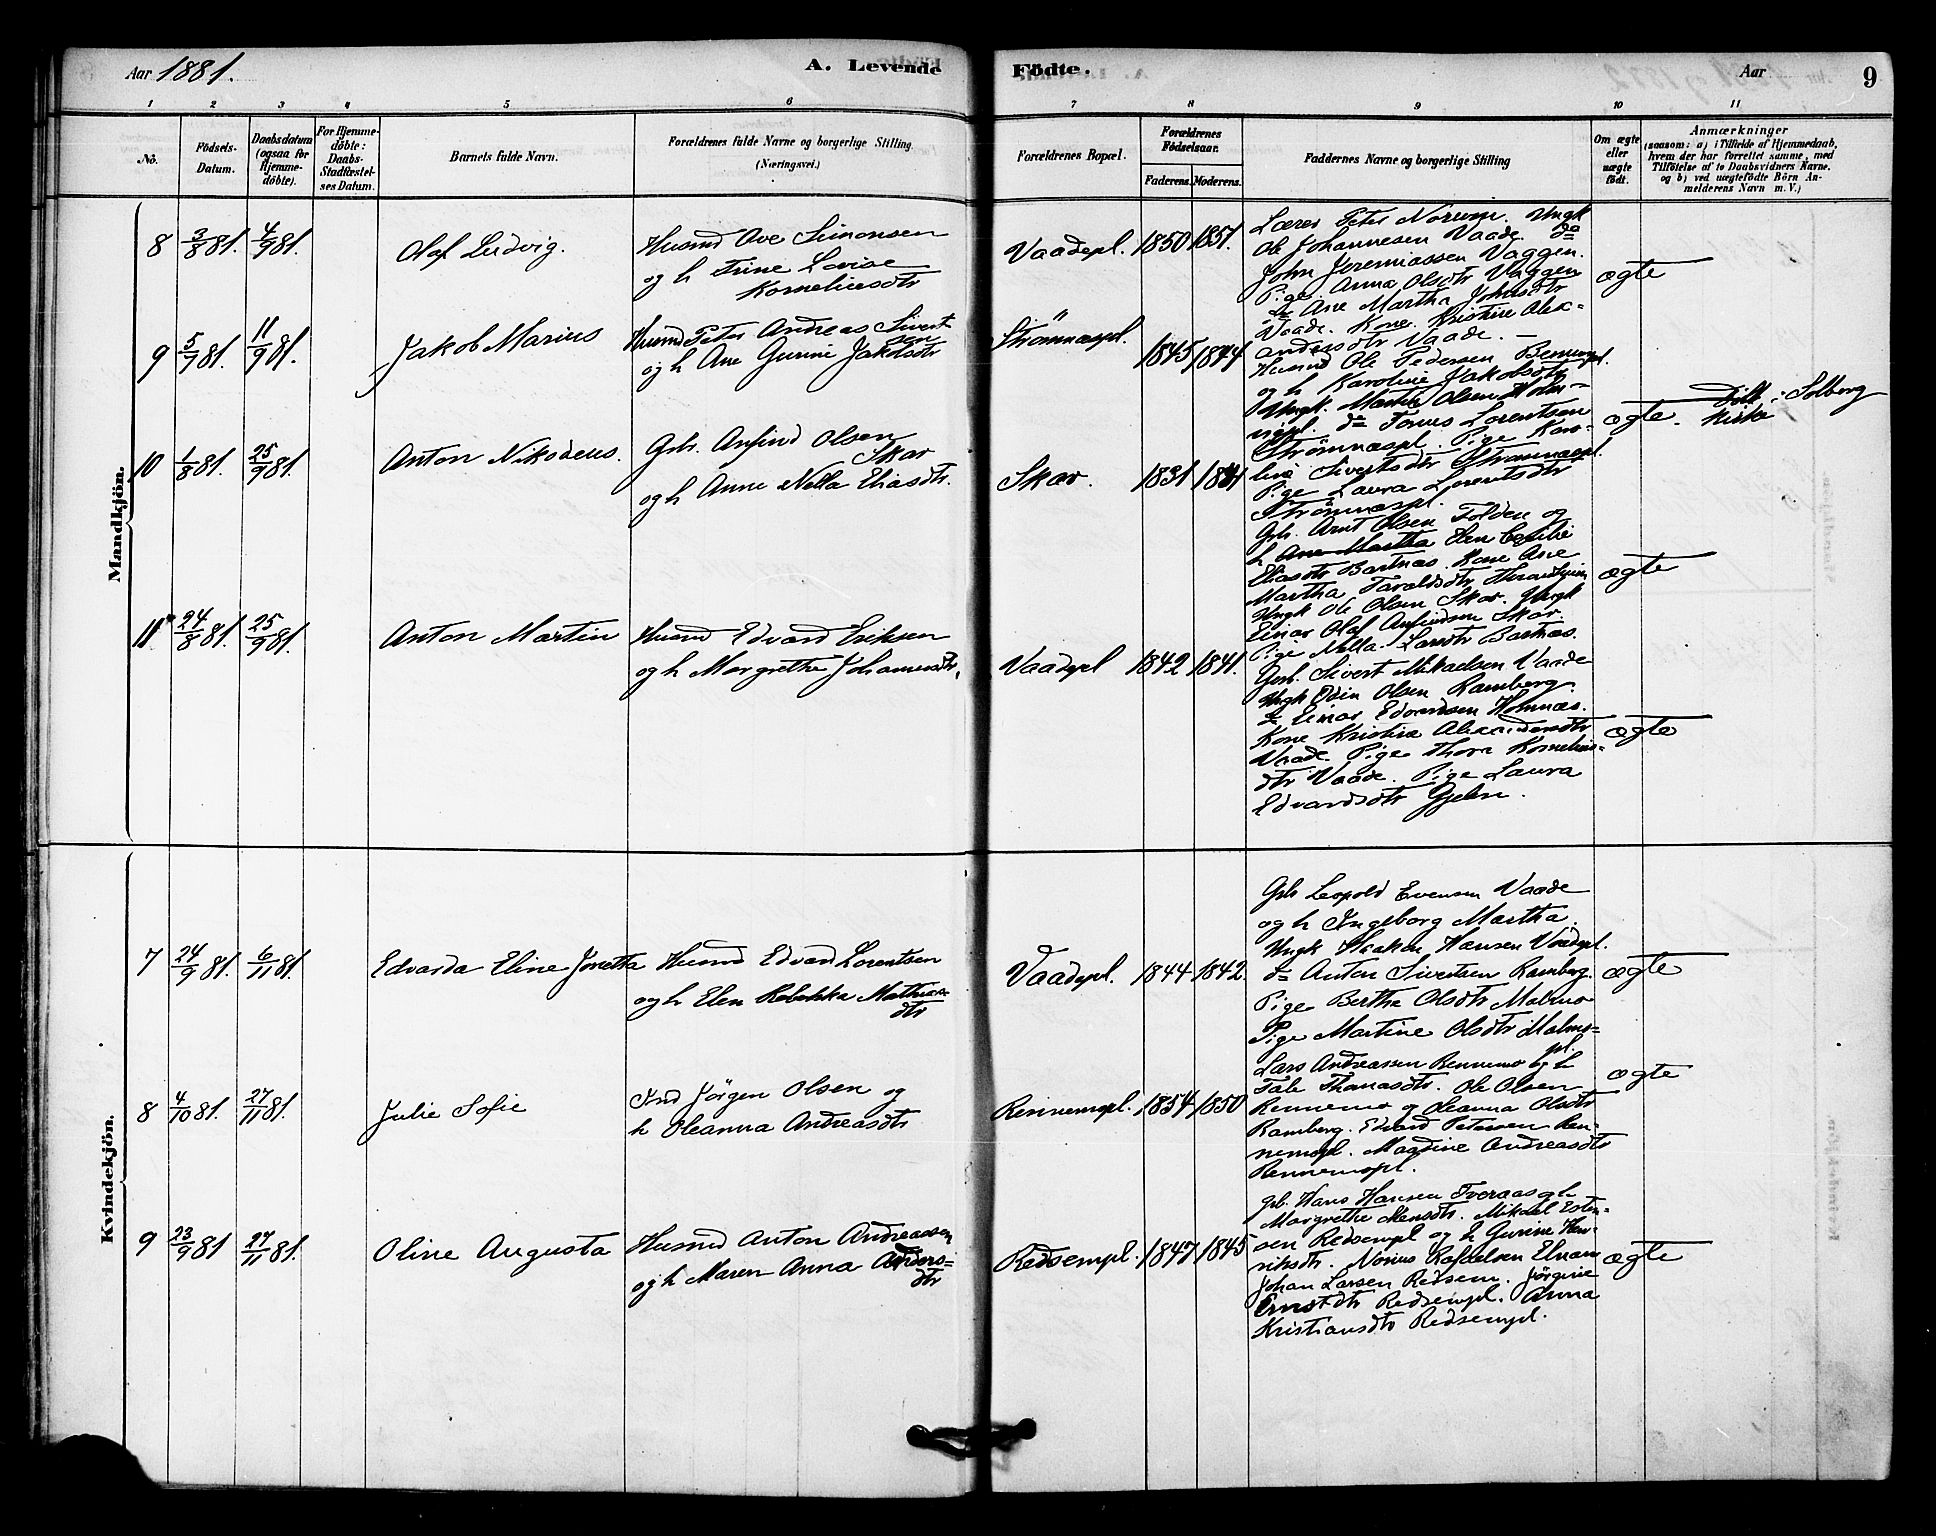 Aar 1881.
A. Levende
Födte.
Aar
9
1 2 3 4 5 6 7 8 9 10 11
No.
Födsels-
Datum.
Daabsdatum
(ogsaa for
Hjemme-
döbte).
For Hjemme-
döbte:
Daabs-
Stadfæstel-
ses Datum.
Barnets fulde Navn.
Forældrenes fulde Navne og borgerlige Stilling
(Næringsvei.)
Forældrenes Bopæl.
Forældrenes
Födselsaar.
Faderens.
Moderens.
Faddernes Navne og borgerlige Stilling
Om ægte
eller
uægte
födt.
Anmærkninger
(saasom: a) i Tilfælde af Hjemmedaab,
hvem der har forrettet samme, med
Tilföielse af to Daabsvidners Navne.
og b) ved uægtefödte Börn An-
melderens Navn m. V.)
Mandkjön.
8 3/8 81. 4/9 81. Olaf Ludvig.
Husmd Ove Simonsen
og h Trine Lovise
Korneliusdtr
Vaadepl. 1850 1857.
Lærer Peter Norum. Ungk
Ole Johannesen Vaade. do
John Jeremiassen Vaggen.
Pige Anna Olsdtr Vaggen
do Ane Martha Johnsdtr
Vaade. Kone Kristine Alex-
andersdtr Vaade. —
ægte
9 5/7 81. 11/9 81. Jakob Marius
Husmd Peter Andreas Sivert-
sen
og h Ane Gurine Jakobsdtr
Strømnæspl. 1845 1844
Husmd Ole Pedersen
og h Karoline Jakobsdtr
Ungk. Martin Olsen Holm-
do Lorentsen
Strømnæspl. Pige Karo-
line Sivertsdtr Strømnæspl.
Pige Laura Lorentsdtr
Strømnæspl.
ægte.
Döbt i Solberg
Kirke
10 1/8 81. 25/9 81. Anton Nikodeus.
Grb. Anfind Olsen
Skar
og h Anne Nella Eliasdtr.
Skar. 1831 1841
Grb. Arnt Olsen Folden og
h Ane Martha Cesilie
Eliasdtr Bartnæs. Kone Ane
Martha Taraldsdtr
Ungk Ole Olsen Skar. Ungk
Einar Olaf Anfindsen Skar
Pige Nella Larsdtr Bartnæs.
ægte
11 24/8 81. 25/9 81. Anton Martin
Husmd Edvard Eriksen
og h Margrethe Johannesdtr.
Vaadepl 1842 1841.
Grb. Sivert Mikaelsen Vaade
Ungk Odin Olsen Ramberg.
do Einar Edvardsen Holmnæs.
Kone Kristine Alexandersdtr
Vaade. Pige Thora Kornelius-
dtr Vaade. Pige Laura
Edvardsdtr Gjelen.
ægte
Kvindekjön.
7 24/9 81. 6/11 81. Edvarda Eline Jonetta
Husmd Edvard Lorentsen
og h Elen Rebekka Mathias-
dtr
Vaadepl. 1844 1842.
Grb Leopold Evensen Vaade
og h Ingeborg Martha.
Ungk Haakon Hansen Vaadepl.
do Anton Sivertsen Ramberg.
Pige Berthe Olsdtr Malmo
Pige Martine Olsdtr Malmo-
pl.
ægte
8 4/10 81. 27/11 81. Julie Sofie
Ind Jörgen Olsen og
h Oleanna Andreasdtr
Rennemspl. 1854 1850
Lars Andreassen Rennemo og h
Tale Thomasdtr. Ole Olsen
Rennemo og Oleanna Olsdtr
Ramberg. Edvard Petersen Ren-
nemspl. Magdine Andreasdtr
Rennemspl.
ægte
9 23/9 81 27/11 81. Oline Augusta
Husmd Anton Andreassen
og h Maren Anna Anders-
dtr
Redsempl. 1847 1845
Grb. Hans Hansen Tveraas og h
Margrethe Mensdtr. Mikael Esten-
sen Redsempl og h Gurine Hen-
riksdtr. Norius Rafaelsen Elnam
Johan Larsen Redsem. Jörgine
Ernstdtr Redsempl. Anna
Kristiansdtr Redsempl.
ægte